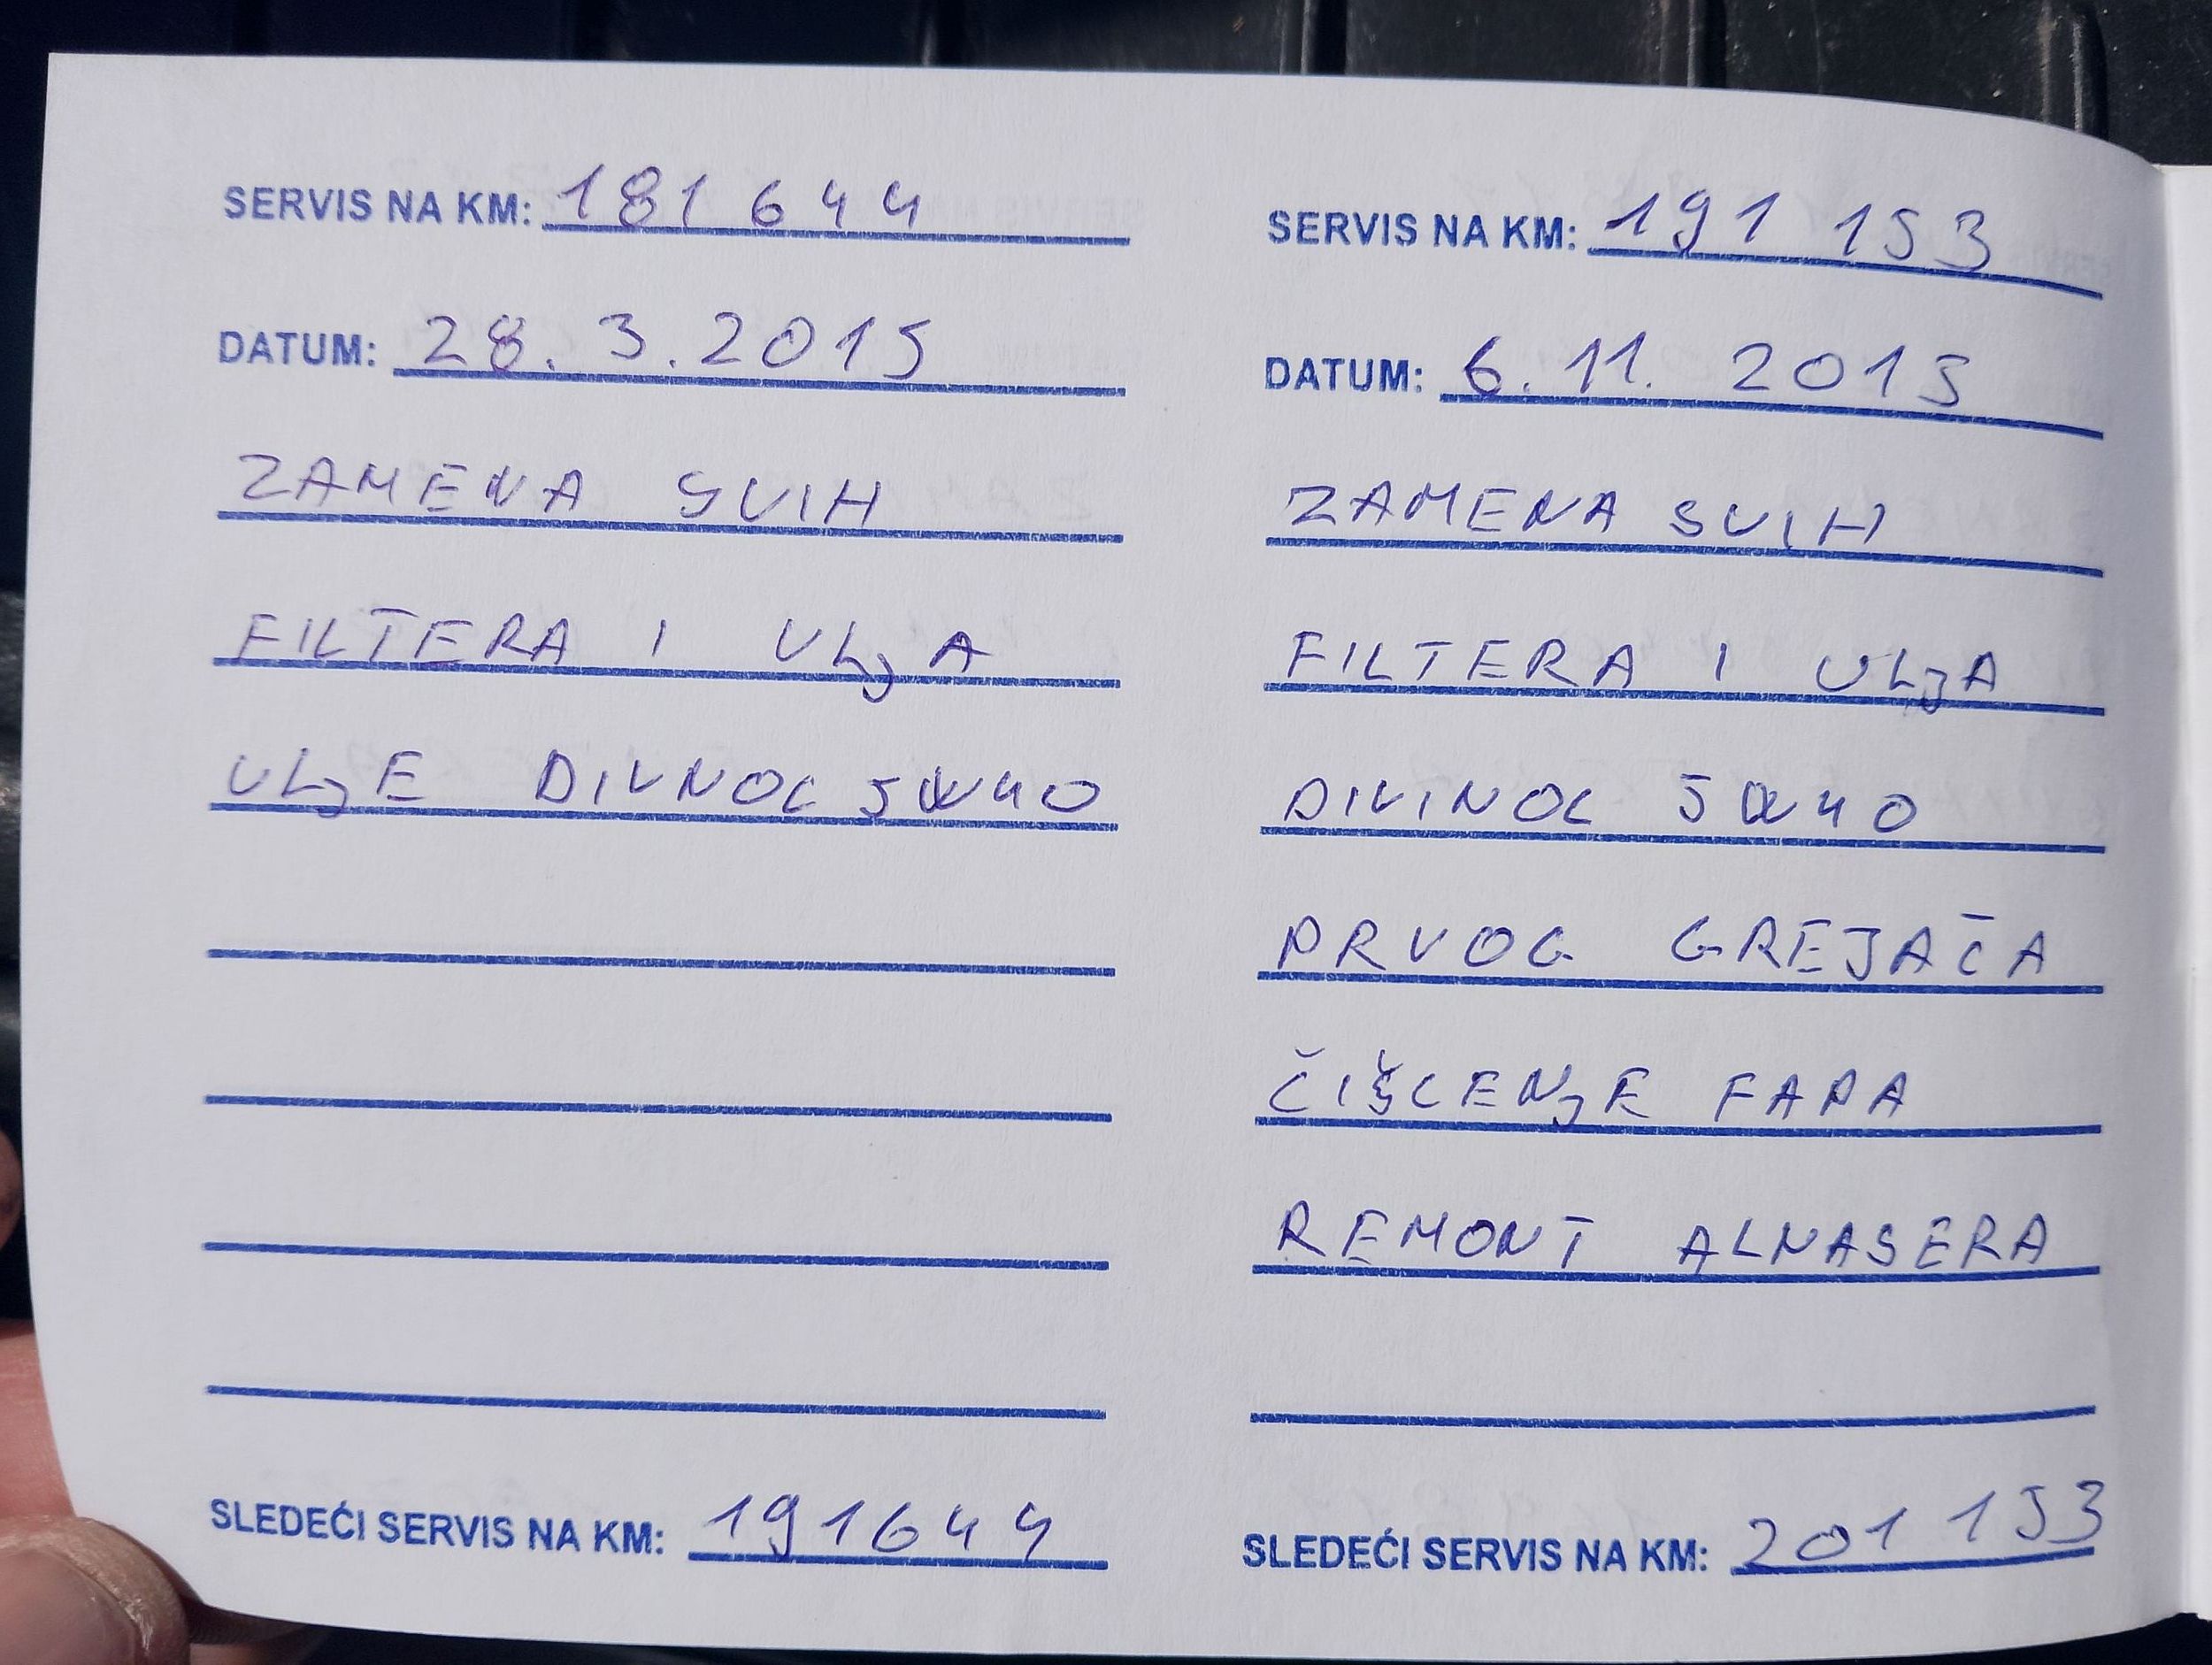 SERVIS NA KM: 181 644
DATUM: 28. 3. 2015
ZAMENA SVIH
FILTERA I ULJA
ULJE DIVNOL 5W40
SLEDEĆI SERVIS NA KM: 191644
SERVIS NA KM: 191 153
DATUM: 6. 11. 2015
ZAMENA SVIH
FILTERA I ULJA
DIVINOL 5W40
PRVOG GREJAČA
ČIŠCENJE FAPA
REMONT ALNASERA
SLEDEĆI SERVIS NA KM: 201 153